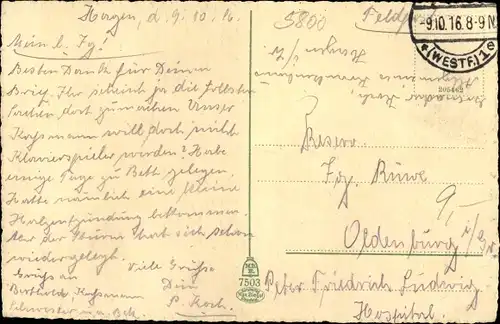 Hagen, d. 9.10.16
Mein l. Fz!
Besten Dank für Deinen
Brief. Ihr scheint ja die tollsten
Sachen dort zu machen. Unser
will doch nicht
Klavierspieler werden? Habe
einige Tage zu Bett gelegen.
Hatte nämlich eine kleine
Halzentzündung bekommen.
der Sturm hat sich schon
wieder gelegt.
Viele Grüße
Grüß an
Dein
Berthold,
P. Koch.
Schwester u.s.
M.B.
B.
7503
5800
Feldpost
-9.10.16.8-9N
*(WESTF.)1e
Hagen i/W
205465
Reserv.
Fz. Rüwe
9,-
Oldenburg i/Gr.
Peter Friedrich Ludwig
Hospital.